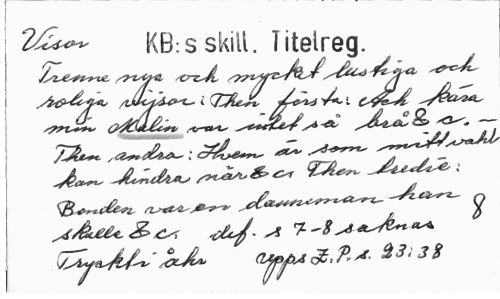 Visor KB:s skill. Titelreg.
Trenne nya och mycket lustiga och
roliga wijsor: Then första: Ach kära
min Malin var intet så brå &c. –
Then andra: Hvem är som mitt vahl
kan hindra när &c. Then tredie:
Bonden var en danneman han
skulle &c. def. s 7-8 saknas 8
Tryckt i åhr Upps Z.P.s. 23:38